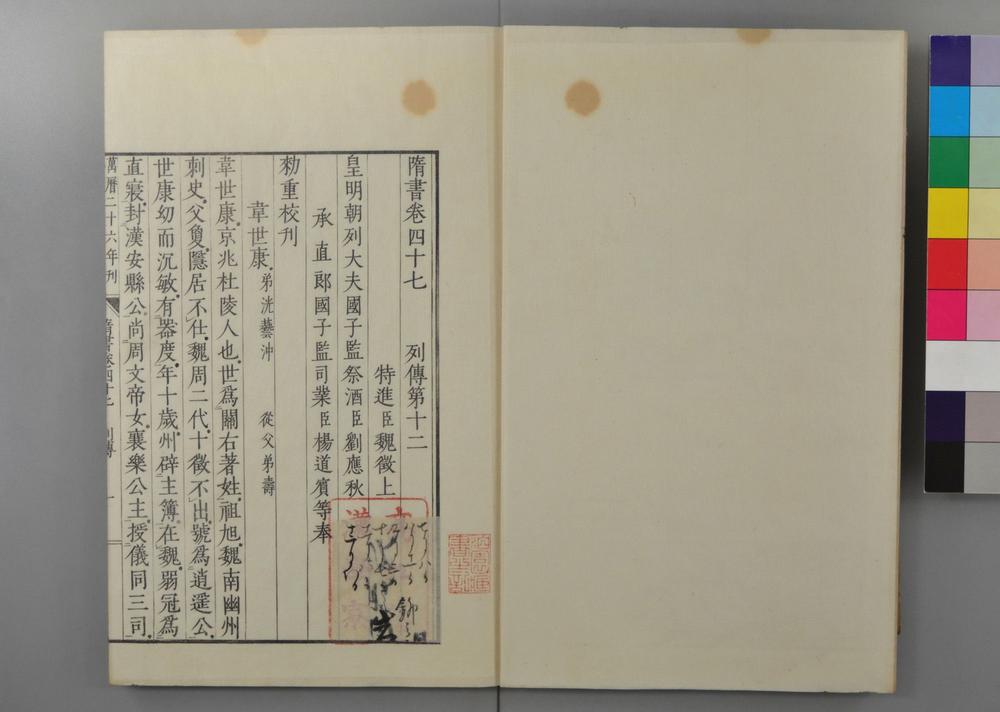 隋書卷四十七 列傳第十二
特進臣魏徵上
皇明朝列大夫國子監祭酒臣劉應秋
承直郎國子監司業臣楊道賓等奉
勑重校刊
韋世康 弟洸藝沖 從父弟壽
韋世康京兆杜陵人也世爲關右著姓祖旭魏南幽州
刺史父敻隱居不仕魏周二代十徵不出號爲逍遥公
世康幼而沉敏有器度年十歲州辟主簿在魏弱冠爲
直寢封漢安縣公尚周文帝女襄樂公主授儀同三司
萬曆二十六年刊 隋書卷四十七 列傳 一